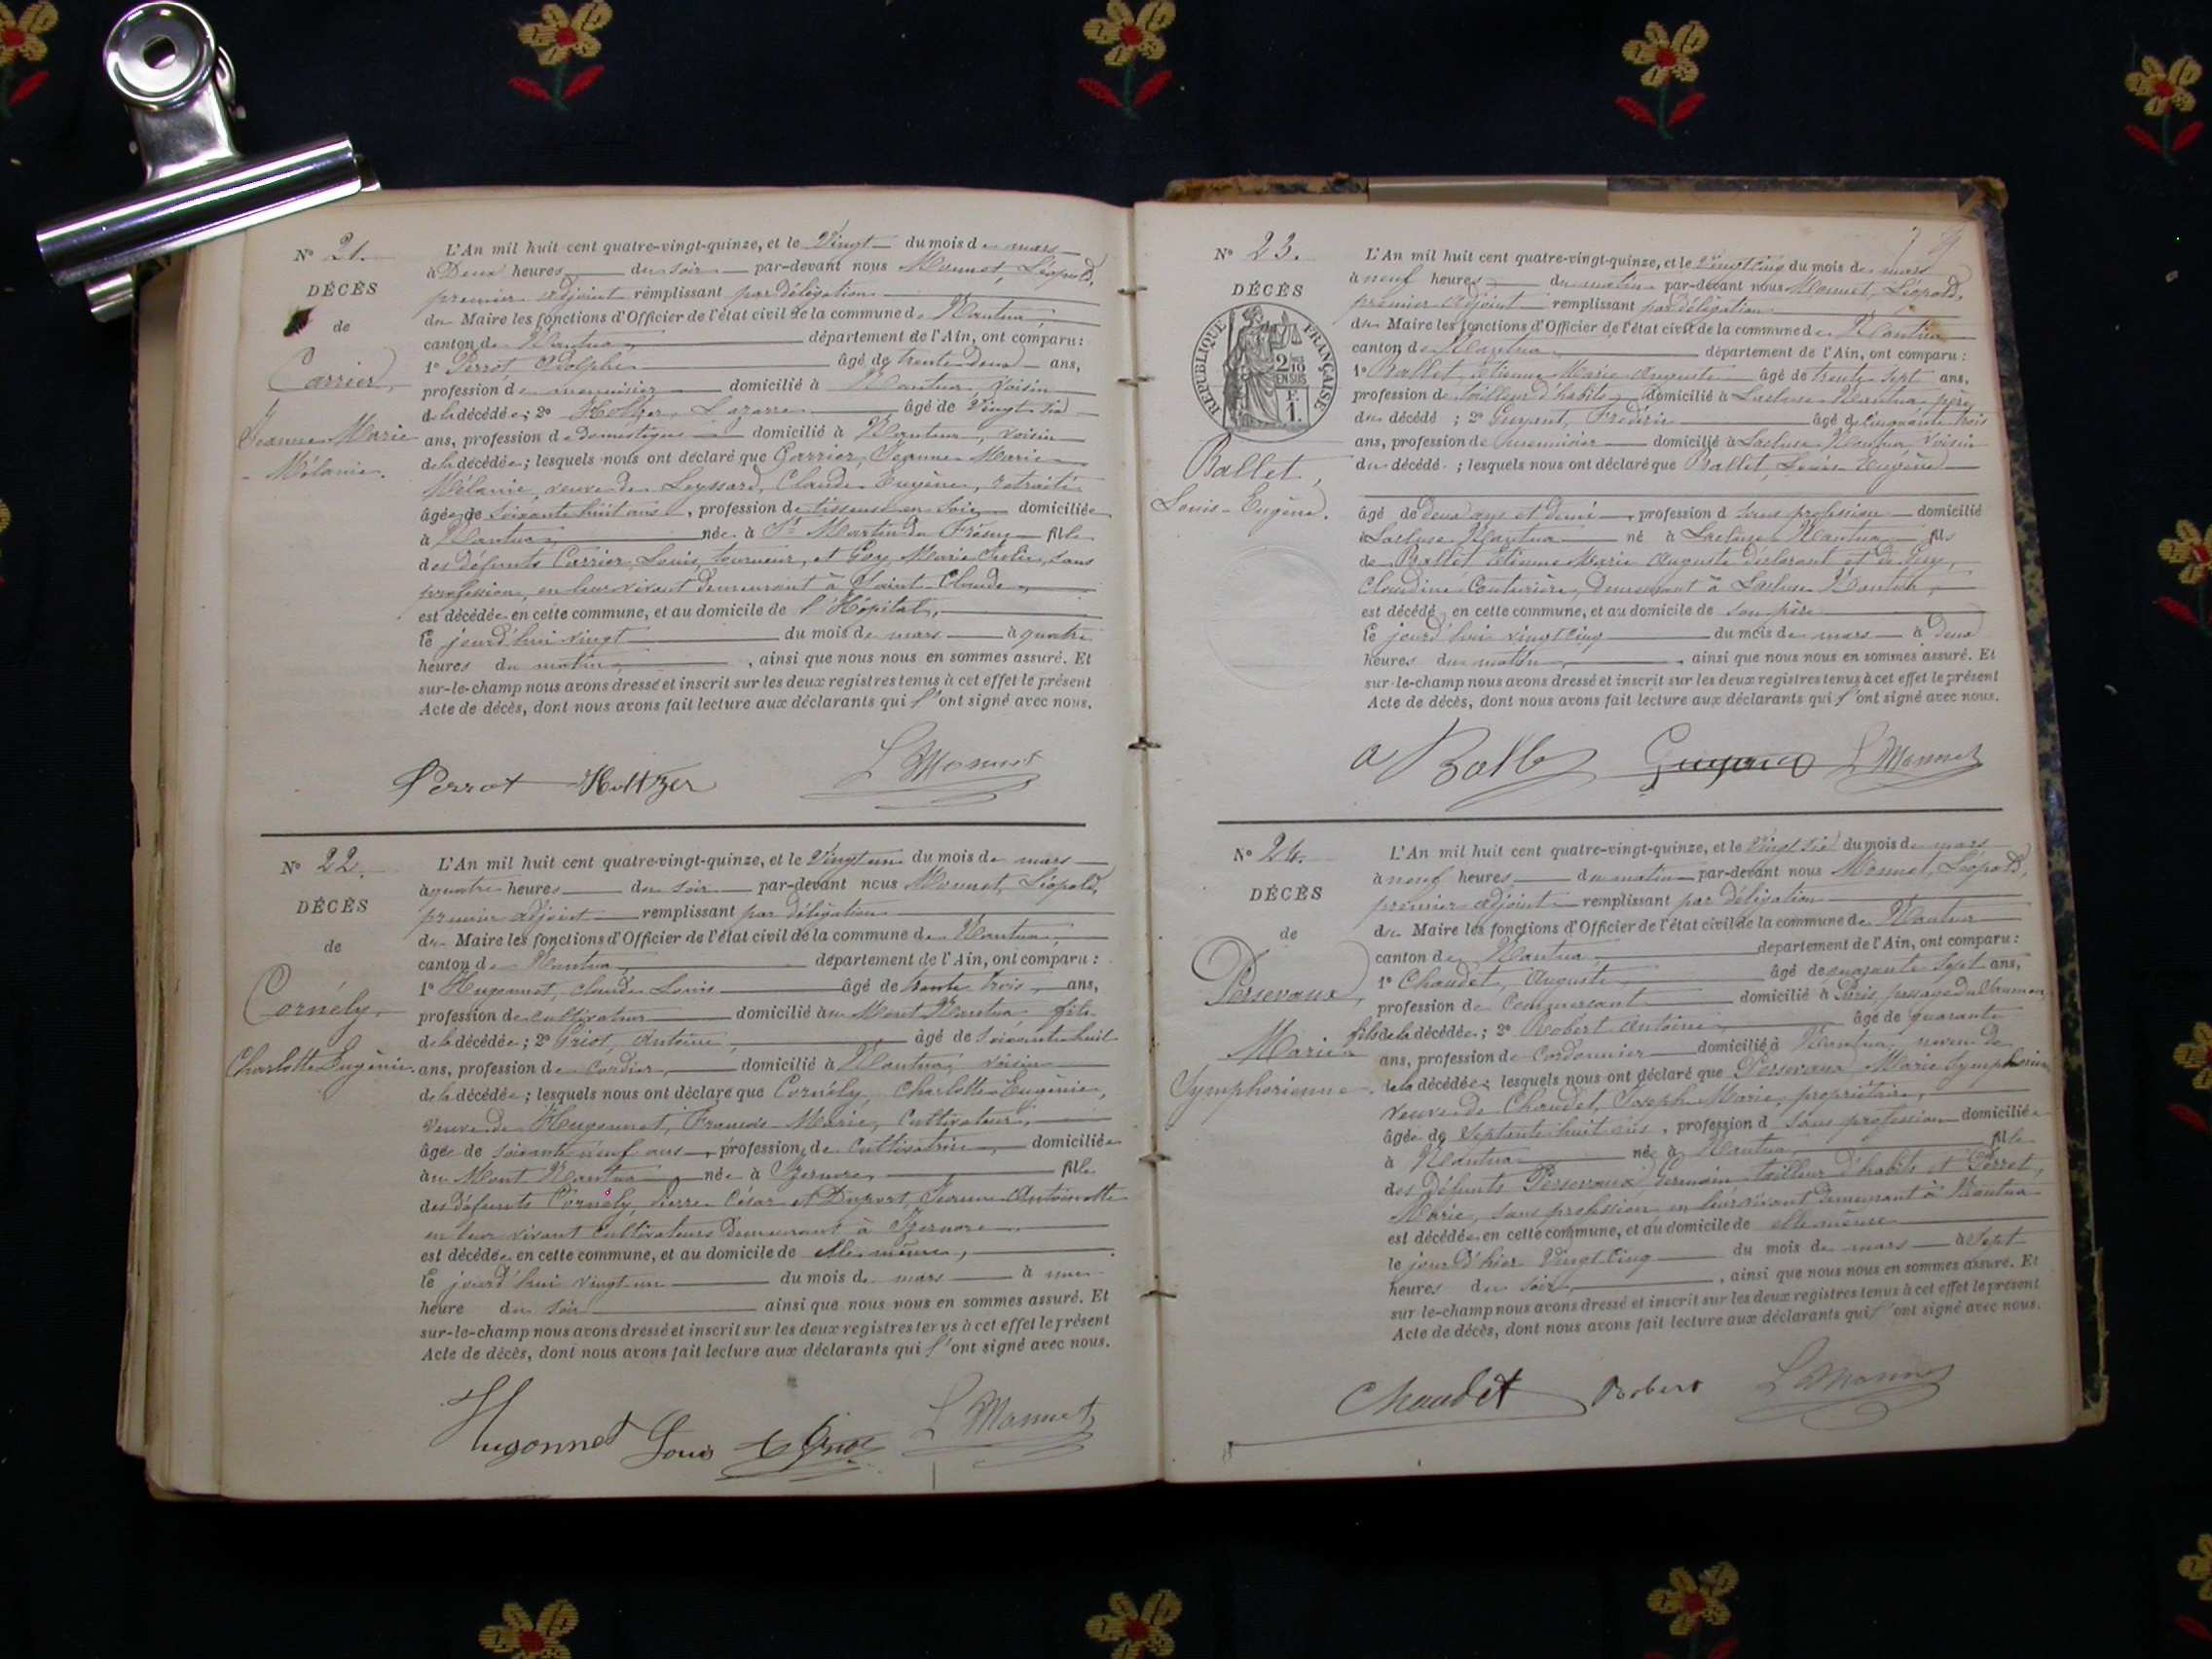 N° 21.
DÉCÈS
de
Carrier,
Jeanne Marie
Mélanie.
L'An mil huit cent quatre-vingt-quinze, et le Vingt du mois de mars
à Deux heures du soir par-devant nous Monnet, Léopold,
premier adjoint remplissant par délégation
du Maire les fonctions d'Officier de l'état civil de la commune de Nantua,
canton de Nantua, département de l'Ain, ont comparu:
1° Perrot Adolphe âgé de trente deux ans,
profession de menuisier domicilié à Nantua, voisin
de la décédée; 2° Holtzer, Lazarre âgé de Vingt six
ans, profession de domestique domicilié à Nantua, voisin
de la décédée; lesquels nous ont déclaré que Carrier, Jeanne Marie
Mélanie, veuve de Leyssard, Claude Eugène, retraité
âgée de soixante huit ans, profession de tisseuse en soie domiciliée
à Nantua, née à St Martin du Frêne fille
des défunts Carrier Louis, tourneur, et Goy Marie, sans
profession, en leur vivant demeurant à Saint-Claude
est décédée en cette commune, et au domicile de l'Hôpital,
le jourd'hui vingt du mois de mars à quatre
heures du matin, ainsi que nous nous en sommes assuré. Et
sur-le-champ nous avons dressé et inscrit sur les deux registres tenus à cet effet le présent
Acte de décès, dont nous avons fait lecture aux déclarants qui l'ont signé avec nous.
Perrot Holtzer L Monnet
N° 22.
DÉCÈS
de
Cornély,
Charlotte Eugénie.
L'An mil huit cent quatre-vingt-quinze, et le Vingt un du mois de mars
à quatre heures du soir par-devant nous Monnet, Léopold,
premier adjoint remplissant par délégation
du Maire les fonctions d'Officier de l'état civil de la commune de Nantua,
canton de Nantua, département de l'Ain, ont comparu:
1° Hugonnet, Claude Louis âgé de trente trois ans,
profession de cultivateur domicilié au Mont Nantua fils
de la décédée; 2° Griot, Antoine, âgé de soixante huit
ans, profession de Cordier, domicilié à Nantua, voisin
de la décédée; lesquels nous ont déclaré que Cornély, Charlotte Eugénie,
veuve de Hugonnet, François Marie, Cultivateur,
âgée de soixante neuf ans, profession de Cultivatrice, domiciliée
au Mont Nantua née à Izernore, fille
des défunts Cornély, Pierre César et Duport, Jeanne Antoinette
en leur vivant cultivateurs demeurant à Izernore
est décédée en cette commune, et au domicile de elle même,
le jourd'hui vingt un du mois de mars à une
heure du soir ainsi que nous nous en sommes assuré. Et
sur-le-champ nous avons dressé et inscrit sur les deux registres tenus à cet effet le présent
Acte de décès, dont nous avons fait lecture aux déclarants qui l'ont signé avec nous.
Hugonnet Louis Griot L Monnet
N° 23.
DÉCÈS
RÉPUBLIQUE FRANÇAISE
2/10 EN SUS
F. 1.
Ballet,
Louis-Eugène.
L'An mil huit cent quatre-vingt-quinze, et le Vingt cinq du mois de mars
à neuf heures du matin par-devant nous Monnet, Léopold,
premier adjoint remplissant par délégation
du Maire les fonctions d'Officier de l'état civil de la commune de Nantua
canton de Nantua département de l'Ain, ont comparu:
1° Ballet, Etienne Marie Auguste âgé de trente sept ans,
profession de tailleur d'habits, domicilié à Lacluse Nantua père
du décédé; 2° Guyant, Frédéric âgé de cinquante trois
ans, profession de menuisier domicilié à Lacluse Nantua, voisin
du décédé; lesquels nous ont déclaré que Ballet, Louis Eugène
âgé de deux ans et demi, profession d sans profession domicilié
à Lacluse Nantua né à Lacluse Nantua fils
de Ballet Etienne Marie Auguste déclarant et de Guy,
Claudine Couturière, demeurant à Lacluse Nantua,
est décédé en cette commune, et au domicile de son père
le jourd'hui vingt cinq du mois de mars à deux
heures du matin, ainsi que nous nous en sommes assuré. Et
sur-le-champ nous avons dressé et inscrit sur les deux registres tenus à cet effet le présent
Acte de décès, dont nous avons fait lecture aux déclarants qui l'ont signé avec nous.
a Ballet L Monnet
N° 24.
DÉCÈS
de
Persevaux,
Marie
Symphorienne
L'An mil huit cent quatre-vingt-quinze, et le Vingt six du mois de mars
à neuf heures du matin par-devant nous Monnet, Léopold,
premier adjoint remplissant par délégation
du Maire les fonctions d'Officier de l'état civil de la commune de Nantua
canton de Nantua département de l'Ain, ont comparu:
1° Chaudet, Auguste âgé de quarante sept ans,
profession de Commerçant domicilié à Paris, passage du
fils de la décédée; 2° Robert Antoine, âgé de quarante
ans, profession de Cordonnier domicilié à Nantua, neveu de
de la décédée; lesquels nous ont déclaré que Persevaux Marie Symphorienne
veuve de Chaudet, Joseph Marie, propriétaire,
âgée de Septante huit ans, profession d sans profession domiciliée
à Nantua née à Nantua, fille
des défunts Persevaux, Germain tailleur d'habits et Perret,
Marie, sans profession en leur vivant demeurant à Nantua
est décédée en cette commune, et au domicile de elle même
le jour d'hier Vingt cinq du mois de mars à sept
heures du soir, ainsi que nous nous en sommes assuré. Et
sur-le-champ nous avons dressé et inscrit sur les deux registres tenus à cet effet le présent
Acte de décès, dont nous avons fait lecture aux déclarants qui l'ont signé avec nous.
Chaudet Robert L Monnet